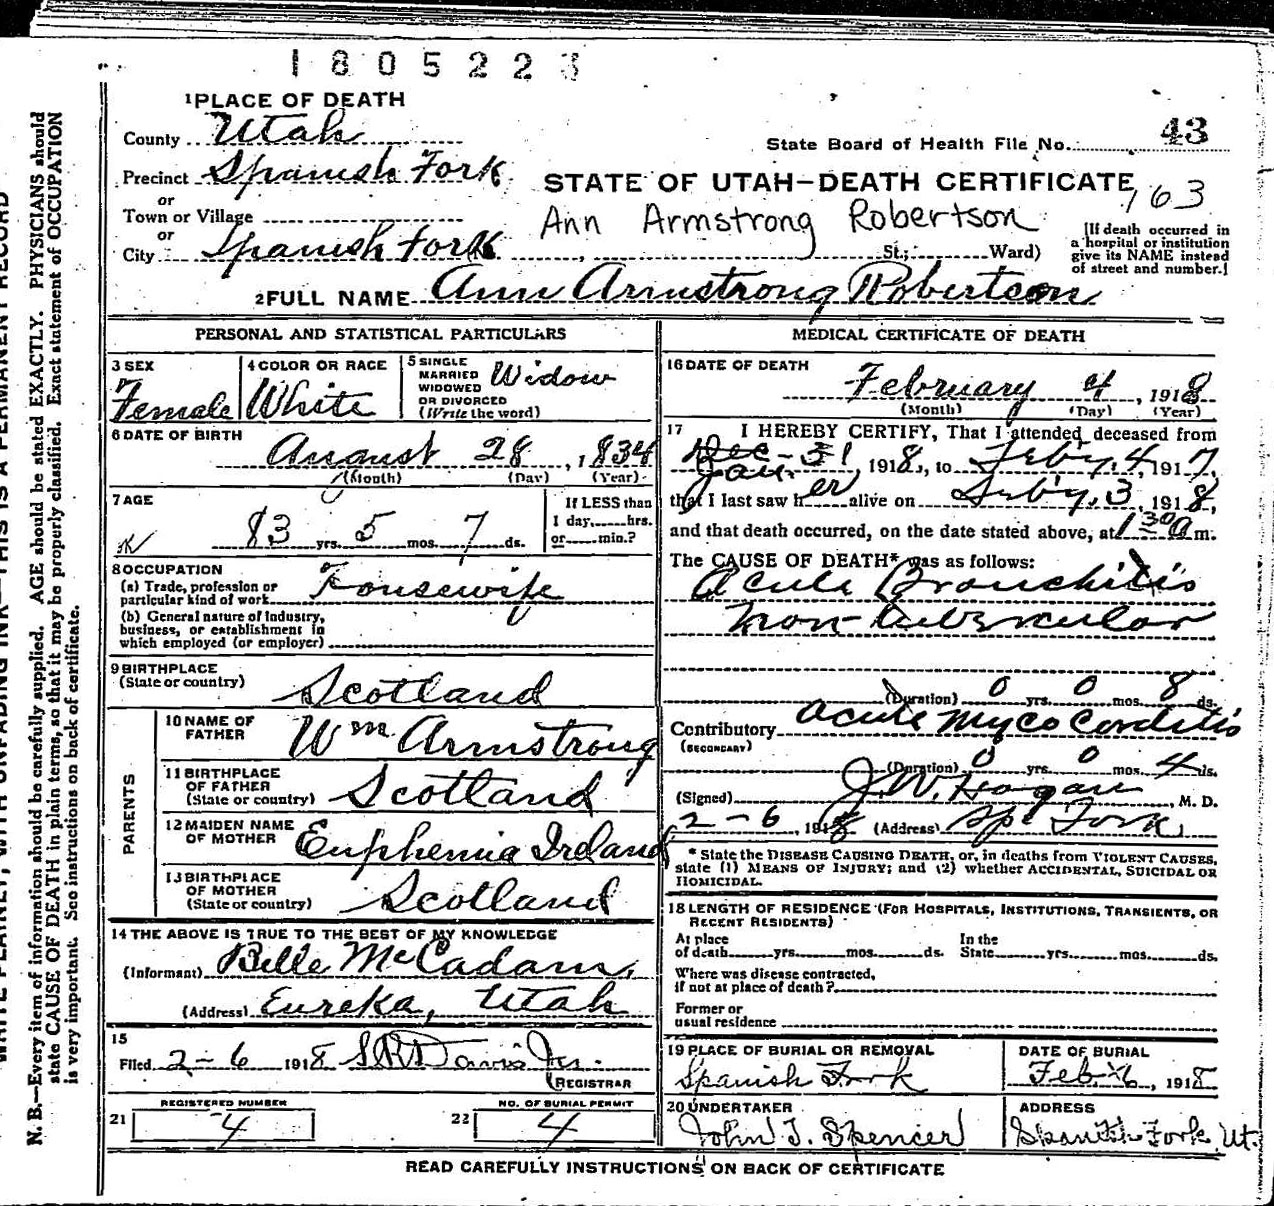 1805223
1 PLACE OF DEATH
County Utah
State Board of Health File No. 43
Precinct Spanish Fork
STATE OF UTAH—DEATH CERTIFICATE
163
or
Town or Village
Ann Armstrong Robertson
or
City Spanish Fork St.; Ward)
[If death occurred in
a hospital or institution
give its NAME instead
of street and number.]
2 FULL NAME Ann Armstrong Robertson
PERSONAL AND STATISTICAL PARTICULARS
3 SEX
Female
4 COLOR OR RACE
White
5 SINGLE
MARRIED
WIDOWED
OR DIVORCED
(Write the word)
Widow
6 DATE OF BIRTH
August 28, 1834
(Month) (Day) (Year)
7 AGE
83 yrs. 5 mos. 7 ds.
If LESS than
1 day, hrs.
or min.?
8 OCCUPATION
(a) Trade, profession or
particular kind of work Housewife
(b) General nature of industry,
business, or establishment in
which employed (or employer)
9 BIRTHPLACE
(State or country)
Scotland
PARENTS
10 NAME OF
FATHER
Wm Armstrong
11 BIRTHPLACE
OF FATHER
(State or country) Scotland
12 MAIDEN NAME
OF MOTHER Euphemia Ireland
13 BIRTHPLACE
OF MOTHER
(State or country) Scotland
14 THE ABOVE IS TRUE TO THE BEST OF MY KNOWLEDGE
(Informant) Belle McCadam,
(Address) Eureka, Utah
15
Filed 2-6 1918 Davis
REGISTRAR
REGISTERED NUMBER
21 4
NO. OF BURIAL PERMIT
22 4
MEDICAL CERTIFICATE OF DEATH
16 DATE OF DEATH
February 4, 1918
(Month) (Day) (Year)
17 I HEREBY CERTIFY, That I attended deceased from
Dec - 31
Jan. 1918, to Feb'y. 4, 1917,
that I last saw her alive on Feb'y. 3, 1918,
and that death occurred, on the date stated above, at 1 30 a m.
The CAUSE OF DEATH* was as follows:
Acute Bronchitis
non-tubercular
(Duration) 0 yrs. 0 mos. 8 ds.
Contributory Acute Myo Corditis
(SECONDARY)
(Duration) 0 yrs. 0 mos. 4 ds.
(Signed) J.W. Hagan, M. D.
2-6, 1918 (Address) Sp. Fork
* State the DISEASE CAUSING DEATH, or, in deaths from VIOLENT CAUSES,
state (1) MEANS OF INJURY; and (2) whether ACCIDENTAL, SUICIDAL OR
HOMICIDAL.
18 LENGTH OF RESIDENCE (FOR HOSPITALS, INSTITUTIONS, TRANSIENTS, OR
RECENT RESIDENTS)
At place
of death yrs. mos. ds.
In the
State yrs. mos. ds.
Where was disease contracted,
if not at place of death?
Former or
usual residence
19 PLACE OF BURIAL OR REMOVAL
Spanish Fork
DATE OF BURIAL
Feb. 6, 1918
20 UNDERTAKER
John T. Spencer
ADDRESS
Spanish Fork Ut.
READ CAREFULLY INSTRUCTIONS ON BACK OF CERTIFICATE
N. B.—Every item of information should be carefully supplied. AGE should be stated EXACTLY. PHYSICIANS should
state CAUSE OF DEATH in plain terms, so that it may be properly classified. Exact statement of OCCUPATION
is very important. See instructions on back of certificate.